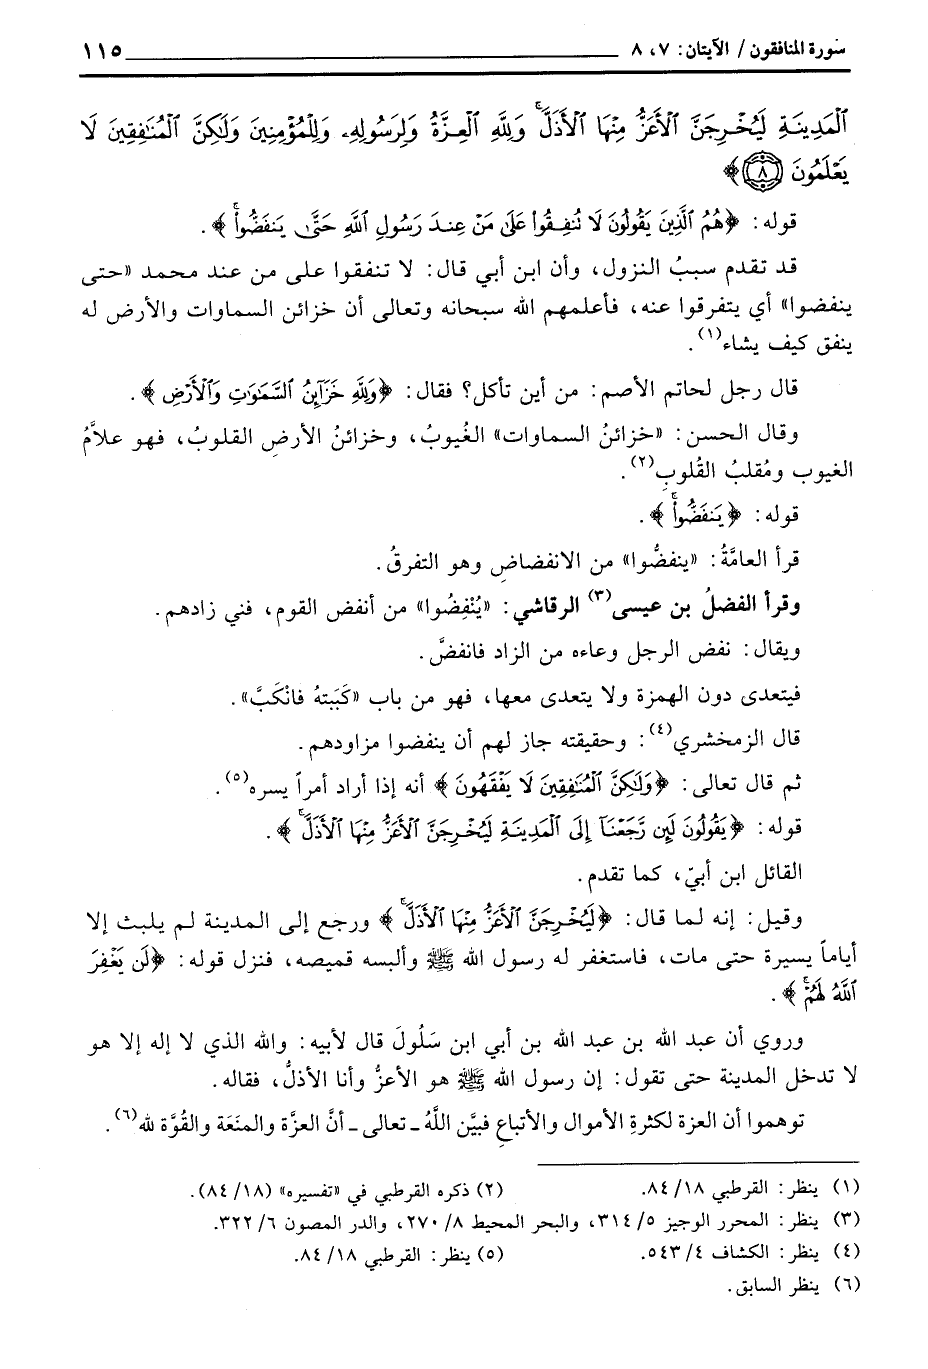 سورة المنافقون / الآيتان: ٧، ٨ ١١٥
ٱلْمَدِينَةِ لَيُخْرِجَنَّ ٱلْأَعَزُّ مِنْهَا ٱلْأَذَلَّ ۚ وَلِلَّهِ ٱلْعِزَّةُ وَلِرَسُولِهِۦ وَلِلْمُؤْمِنِينَ وَلَٰكِنَّ ٱلْمُنَٰفِقِينَ لَا
يَعْلَمُونَ ﴿٨﴾
قوله: ﴿هُمُ ٱلَّذِينَ يَقُولُونَ لَا تُنفِقُوا۟ عَلَىٰ مَنْ عِندَ رَسُولِ ٱللَّهِ حَتَّىٰ يَنفَضُّوا۟ ۗ﴾.
قد تقدم سببُ النزول، وأن ابن أبي قال: لا تنفقوا على من عند محمد «حتى
ينفضوا» أي يتفرقوا عنه، فأعلمهم الله سبحانه وتعالى أن خزائن السماوات والأرض له
ينفق كيف يشاء(١).
قال رجل لحاتم الأصم: من أين تأكل؟ فقال: ﴿وَلِلَّهِ خَزَآئِنُ ٱلسَّمَٰوَٰتِ وَٱلْأَرْضِ﴾.
وقال الحسن: «خزائنُ السماوات» الغُيوبُ، وخزائنُ الأرضِ القلوبُ، فهو علاَّمُ
الغيوب ومُقلبُ القُلوبِ(٢).
قوله: ﴿يَنفَضُّوا۟ ۗ﴾.
قرأ العامَّةُ: «ينفضُّوا» من الانفضاضِ وهو التفرقُ.
وقرأ الفضلُ بن عيسى(٣) الرقاشي: «يُنْفِضُوا» من أنفض القوم، فني زادهم.
ويقال: نفض الرجل وعاءه من الزاد فانفضَّ.
فيتعدى دون الهمزة ولا يتعدى معها، فهو من باب «كَبَبتهُ فانْكَبَّ».
قال الزمخشري(٤): وحقيقته جاز لهم أن ينفضوا مزاودهم.
ثم قال تعالى: ﴿وَلَٰكِنَّ ٱلْمُنَٰفِقِينَ لَا يَفْقَهُونَ﴾ أنه إذا أراد أمراً يسره(٥).
قوله: ﴿يَقُولُونَ لَئِن رَّجَعْنَآ إِلَى ٱلْمَدِينَةِ لَيُخْرِجَنَّ ٱلْأَعَزُّ مِنْهَا ٱلْأَذَلَّ ۚ﴾.
القائل ابن أبيّ، كما تقدم.
وقيل: إنه لما قال: ﴿لَيُخْرِجَنَّ ٱلْأَعَزُّ مِنْهَا ٱلْأَذَلَّ ۚ﴾ ورجع إلى المدينة لم يلبث إلا
أياماً يسيرة حتى مات، فاستغفر له رسول الله ﷺ وألبسه قميصه، فنزل قوله: ﴿لَن يَغْفِرَ
ٱللَّهُ لَهُمْ ۚ﴾.
وروي أن عبد الله بن عبد الله بن أبي ابن سَلُولَ قال لأبيه: والله الذي لا إله إلا هو
لا تدخل المدينة حتى تقول: إن رسول الله ﷺ هو الأعزُّ وأنا الأذلُّ، فقاله.
توهموا أن العزة لكثرةِ الأموال والأتباعِ فبيَّن اللَّهُ ـ تعالى ـ أنَّ العزَّة والمنَعَة والقُوَّة لله(٦).
(١) ينظر: القرطبي ١٨/ ٨٤. (٢) ذكره القرطبي في «تفسيره» (١٨/ ٨٤).
(٣) ينظر: المحرر الوجيز ٥/ ٣١٤، والبحر المحيط ٨/ ٢٧٠، والدر المصون ٦/ ٣٢٢.
(٤) ينظر: الكشاف ٤/ ٥٤٣. (٥) ينظر: القرطبي ١٨/ ٨٤.
(٦) ينظر السابق.